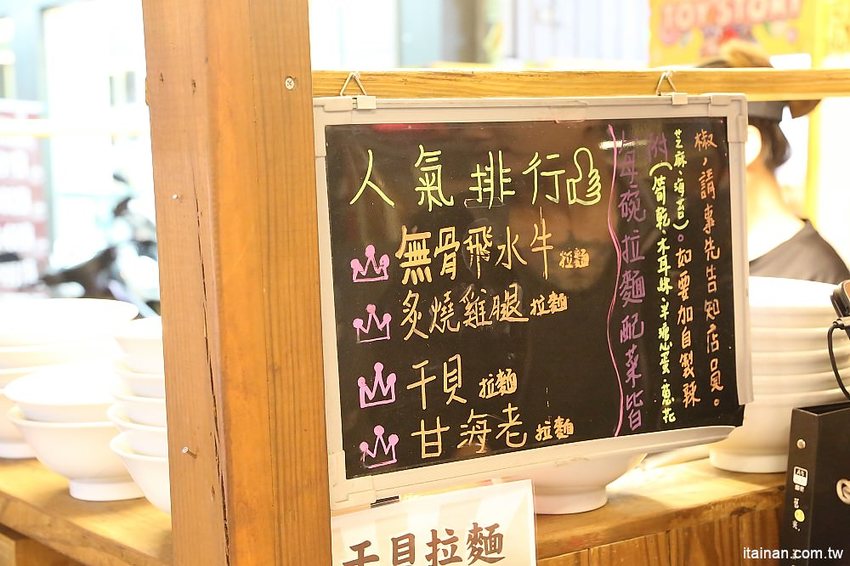 人氣排行
無骨飛水牛拉麵
炙燒雞腿拉麵
干貝拉麵
甘海老拉麵
每碗拉麵配菜皆
附(筍乾、木耳絲、半塘心蛋、蔥花
芝麻、海苔)。如要加自製辣
椒,請事先告知店員。
干貝拉麵
TOY STORY
itainan.com.tw